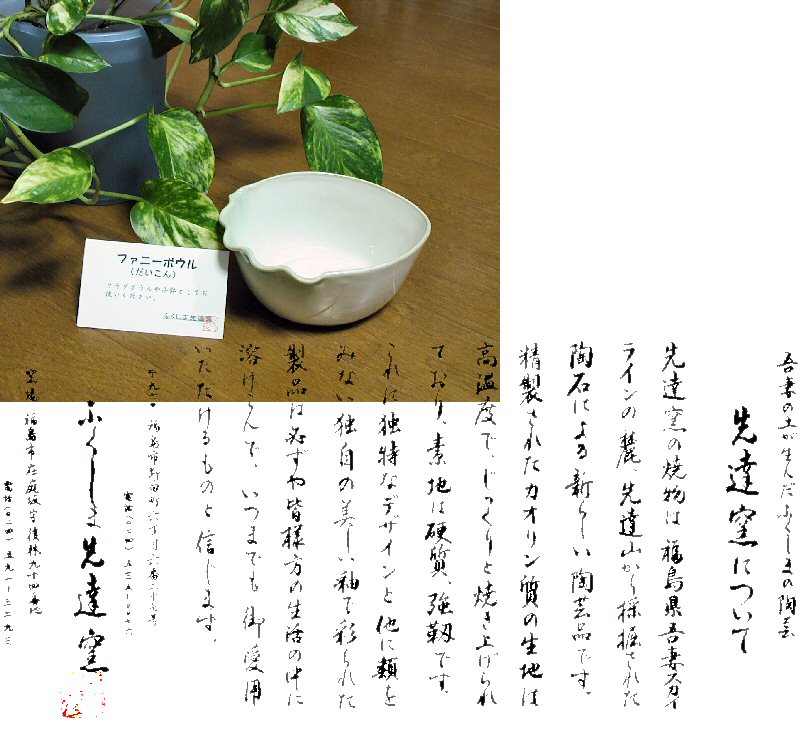 ファニーボウル
(だいこん)
サラダボウルや小鉢としてお
使いください。
ふくしま先達窯
吾妻の土が生んだふくしまの陶芸
先達窯について
先達窯の焼物は福島県吾妻スカイ
ラインの麓、先達山から採掘された
陶石による新らしい陶芸品です。
精製されたカオリン質の生地は
高温度で、じっくりと焼き上げられ
ており、素地は硬質、強靱です。
これに独特なデザインと他に類を
みない独自の美しい釉で彩られた
製品は必ずや皆様方の生活の中に
溶けこんで、いつまでも御愛用
いただけるものと信じます。
ふくしま先達窯
福島市在庭坂字後林九十四番地